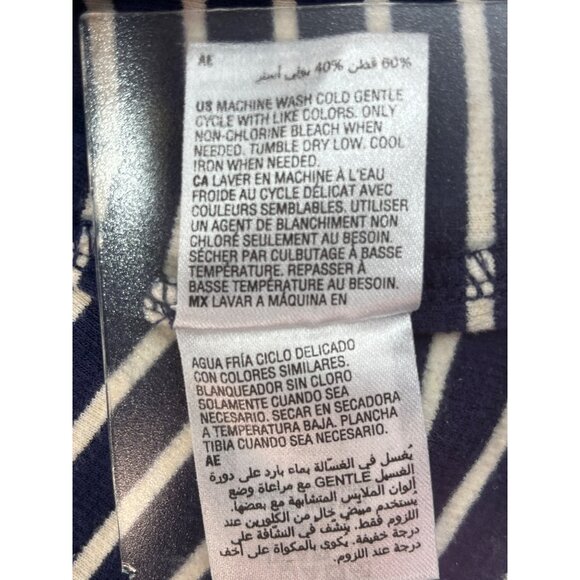 AE
60% قطن 40% بولي أستر
US MACHINE WASH COLD GENTLE
CYCLE WITH LIKE COLORS. ONLY
NON-CHLORINE BLEACH WHEN
NEEDED. TUMBLE DRY LOW. COOL
IRON WHEN NEEDED.
CA LAVER EN MACHINE À L'EAU
FROIDE AU CYCLE DÉLICAT AVEC
COULEURS SEMBLABLES. UTILISER
UN AGENT DE BLANCHIMENT NON
CHLORÉ SEULEMENT AU BESOIN.
SÉCHER PAR CULBUTAGE À BASSE
TEMPÉRATURE. REPASSER À
BASSE TEMPÉRATURE AU BESOIN.
MX LAVAR A MÁQUINA EN
AGUA FRÍA CICLO DELICADO
CON COLORES SIMILARES.
BLANQUEADOR SIN CLORO
SOLAMENTE CUANDO SEA
NECESARIO. SECAR EN SECADORA
A TEMPERATURA BAJA. PLANCHA
TIBIA CUANDO SEA NECESARIO.
AE
يُغسل في الغسالة بماء بارد على دورة
الغسيل GENTLE مع مراعاة وضع
ألوان الملابس المتشابهة مع بعضها.
يستخدم مبيض خالٍ من الكلورين عند
اللزوم فقط. ينشف في النشّافة على
درجة خفيفة. يكوى بالمكواة على أخف
درجة عند اللزوم.